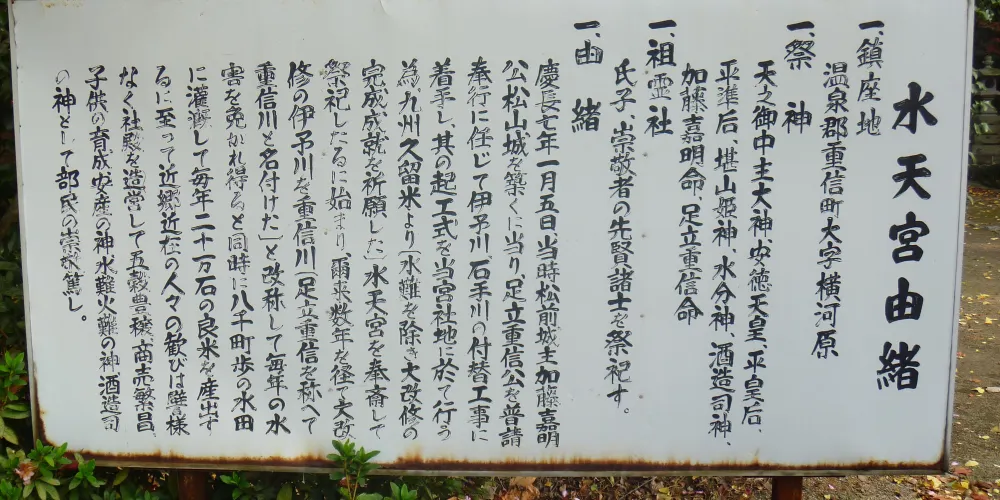 水天宮由緒
一、鎮座地
温泉郡重信町大字横河原
一、祭神
天之御中主大神、安徳天皇、平皇后、
平準后、堪山姫神、水分神、酒造司神、
加藤嘉明命、足立重信命
一、祖霊社
氏子、崇敬者の先賢諸士を祭祀す。
一、由緒
慶長七年一月五日当時松前城主加藤嘉明
公松山城を築くに当り、足立重信公を普請
奉行に任じて伊予川、石手川の付替工事に
着手し、其の起工式を当宮社地に於て行う
為、九州久留米より(水難を除き大改修の
完成成就を祈願した)水天宮を奉斎して
祭祀したるに始まり、爾来数年を径て大改
修の伊予川を重信川(足立重信を称へて
重信川と名付けた)と改称して毎年の水
害を免かれ得ると同時に八千町歩の水田
に灌漑して毎年二十万石の良米を産出す
るに至って近郷近在の人々の歓びは譬様
なく社殿を造営して五穀豊穣、商売繁昌、
子供の育成、安産の神水難火難の神酒造司
の神として部民の崇敬篤し。